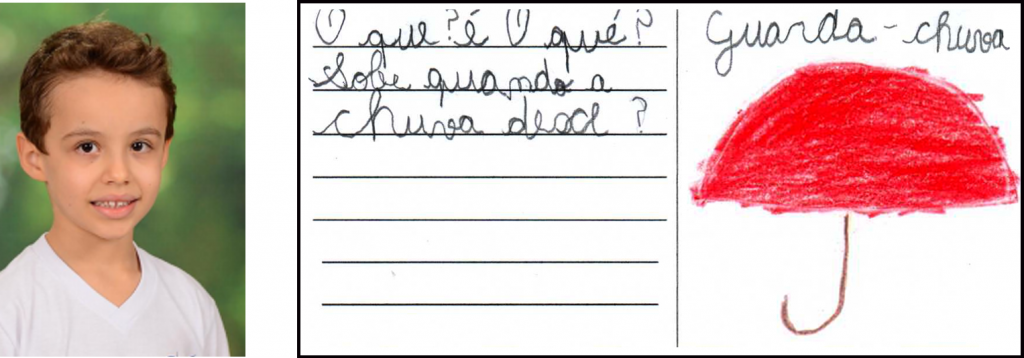 O que?é O qué?
Sobe quando a
chuva desce ?
Guarda-chuva